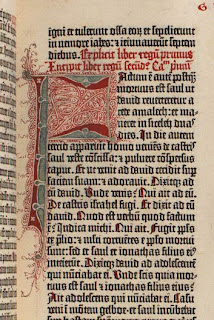 igni: et tulerunt ossa eoꝝ et sepelierunt
in nemore iabes: et ieiunaverunt septem
diebus. Explicit liber regū primus
Incipit liber regū secūd⁹ Ca^m primū
Factum ē autē postq̄ȝ
mortuus est saul ut
david reverteretur a
cede amalech: et ma⸗
neret in siceleg duos
dies. In die autem
tercia apparuit homo veniēs de castris
saul veste cōscissa: et pulvere cōspersus
caput. Et ut venit ad david cecidit sup
faciem suam: et adoravit. Dixitq; ad
eū david. Unde venis? Qui ait ad eū.
De castris israhel fugi. Et dixit ad eū
david. Quod est verbū quod factum
est? Indica michi. Qui ait. Fugit ppls
ex plio: et multi corruētes e pplo mortui
sunt: sed et saul et ionathas filius eius
interierūt. Dixitq; david ad adolescentē
qui nūciabat ei. Unde scis quia mor⸗
tuus est saul et ionathas filius eius?
Ait adolescēs qui nūciabat ei. Casu
veni in montem gelboe: et saul incūbebat